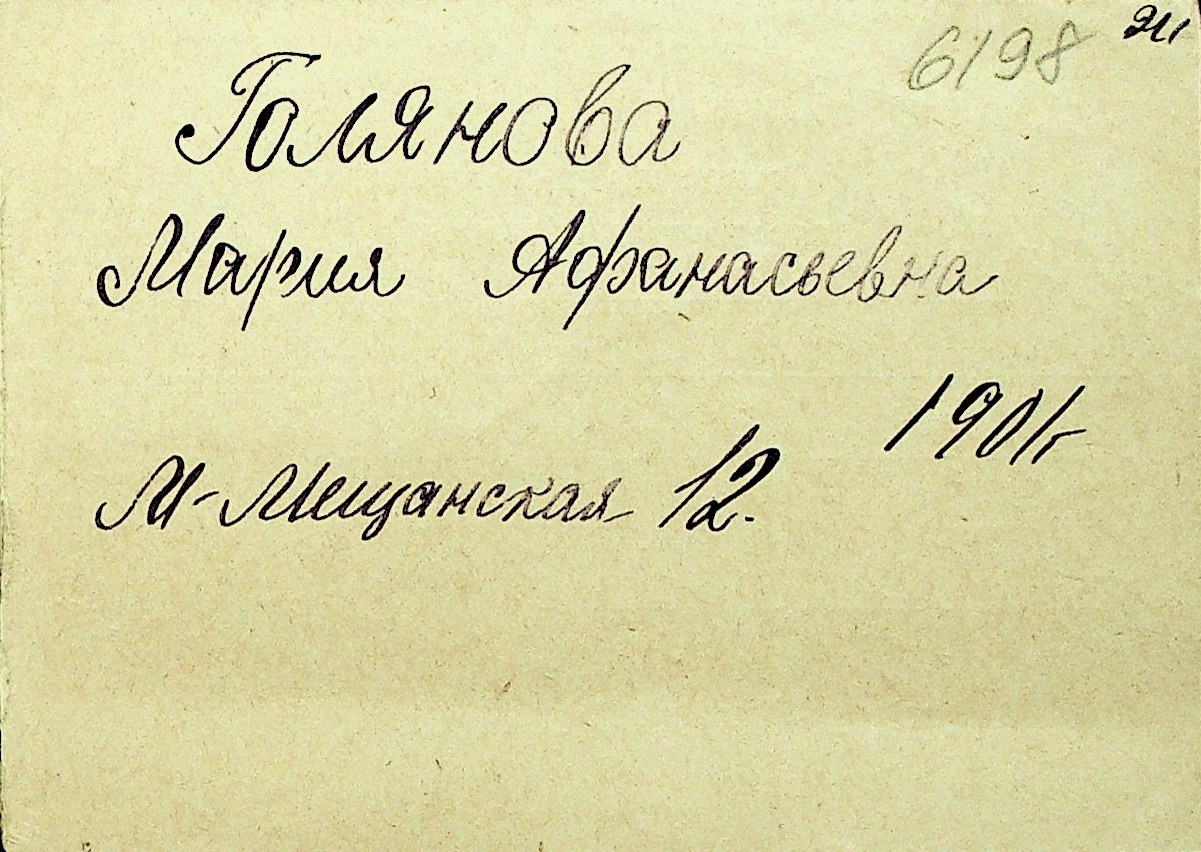 6198
Голянова
Мария Афанасьевна
1901г
М-Мещанская 12.